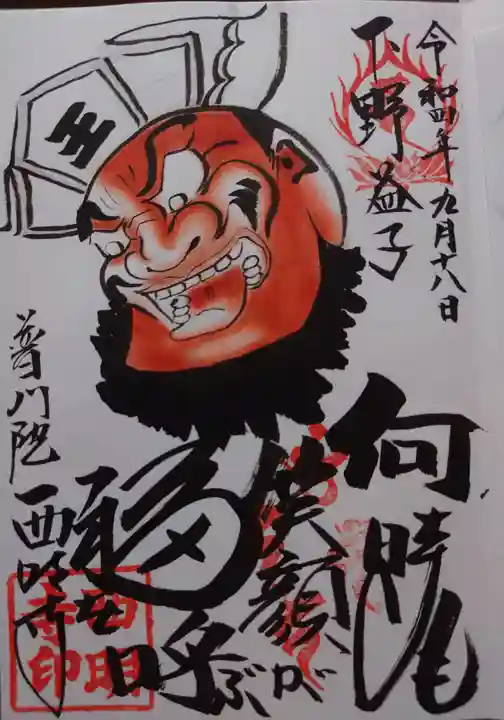 令和四年九月十八日
下野益子
何時も
笑顔が
福を呼ぶ
普門院
西明寺
王
西明寺印